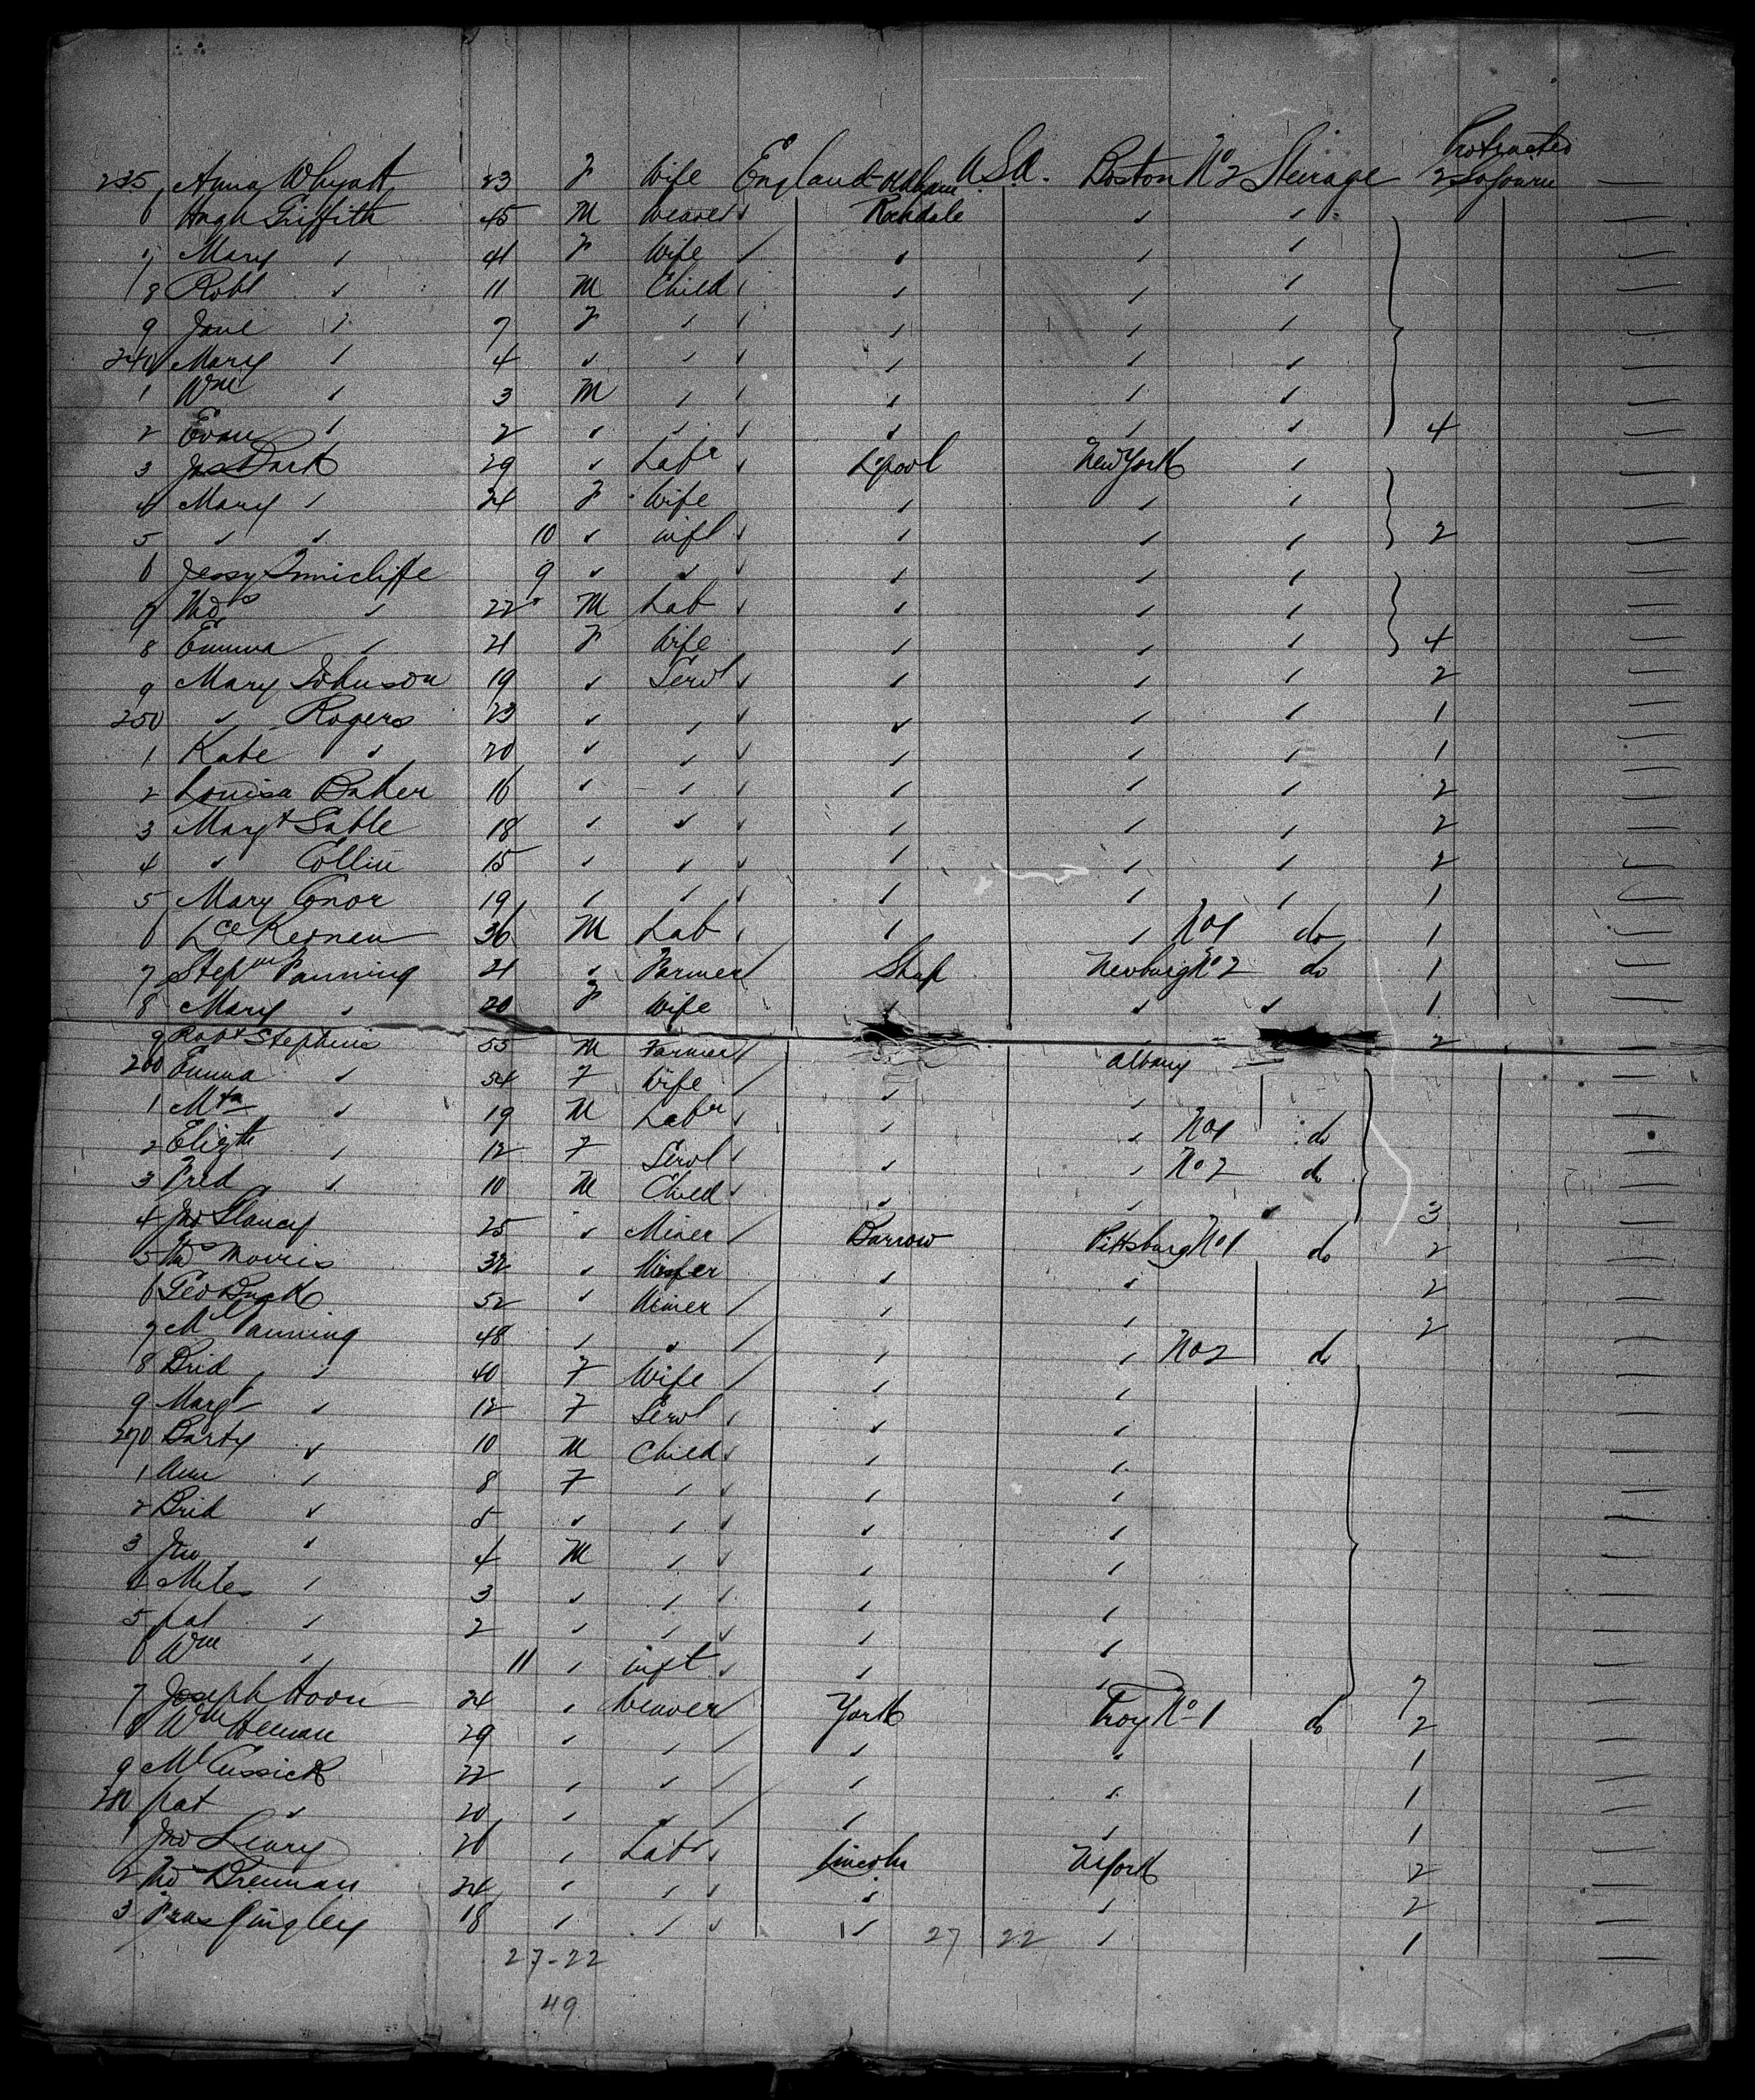 Protracted
235 Anna Whyatt 23 F Wife England Oldham U.S.A. Boston No 2 Steirage 2 Sojourn
6 Hugh Griffith 45 M Weaver Rochdale
7 Mary " 41 F Wife " " "
8 Robt " 11 M Child " " "
9 Jane " 7 F " " " "
240 Mary " 4 " " " " "
1 Wm " 3 M " " " "
2 Evan " 2 " " " " " 4
3 Jas Park 29 " Labr L'pool New York "
4 Mary " 24 F Wife " " "
5 " " 10 " inft " " " 2
6 Jessy 9 " " " " "
7 Thos " 22 M Lab " " "
8 Emma " 21 F Wife " " " 4
9 Mary Johnson 19 " Servt " " " 2
250 " Rogers 23 " " " " " 1
1 Kate " 20 " " " " " 1
2 Louisa Baker 16 " " " " " 2
3 Margt Sable 18 " " " " " 2
4 " Collin 15 " " " " " 2
5 Mary Conor 19 " " " " " 1
6 Lce Kernen 36 M Lab " " No 1 do 1
7 Stepn Panning 21 " Farmer Newburg No 2 do 1
8 Mary " 20 F Wife " " " 1
9 Robt Stephens 55 M Farmer Albany 2
260 Emma " 54 F Wife " "
1 " 19 M Labr " " No 1 do
2 Elizth " 12 F Servt " " No 2 do
3 Fred " 10 M Child " " " 3
4 Jno Clancy 25 " Miner Barrow Pittsburg No 1 do 2
5 Thos Morris 32 " " " 2
6 Geo 52 " Miner " " 2
7 Ml Panning 48 " " " " No 2 do
8 Brid " 40 F Wife " "
9 Margt " 12 F Servt " "
270 Barty " 10 M Child " "
1 Ann " 8 F " " "
2 Brid " 5 " " " "
3 Jno " 4 M " " "
4 Miles " 3 " " " "
5 pat " 2 " " " "
6 Wm " 11 " inft " " 7
7 Joseph Hoon 24 " Weaver York Troy No 1 do 2
8 Wm Heenan 29 " " " " 1
9 Ml Cussick 22 " " " " 1
280 pat " 20 " " " " 1
1 Jno Leary 26 " Labr Lincoln N York 2
2 Thos Brennan 24 " " " " 2
3 Fras Gingley 18 " " " 27 22 " 1
27-22
49